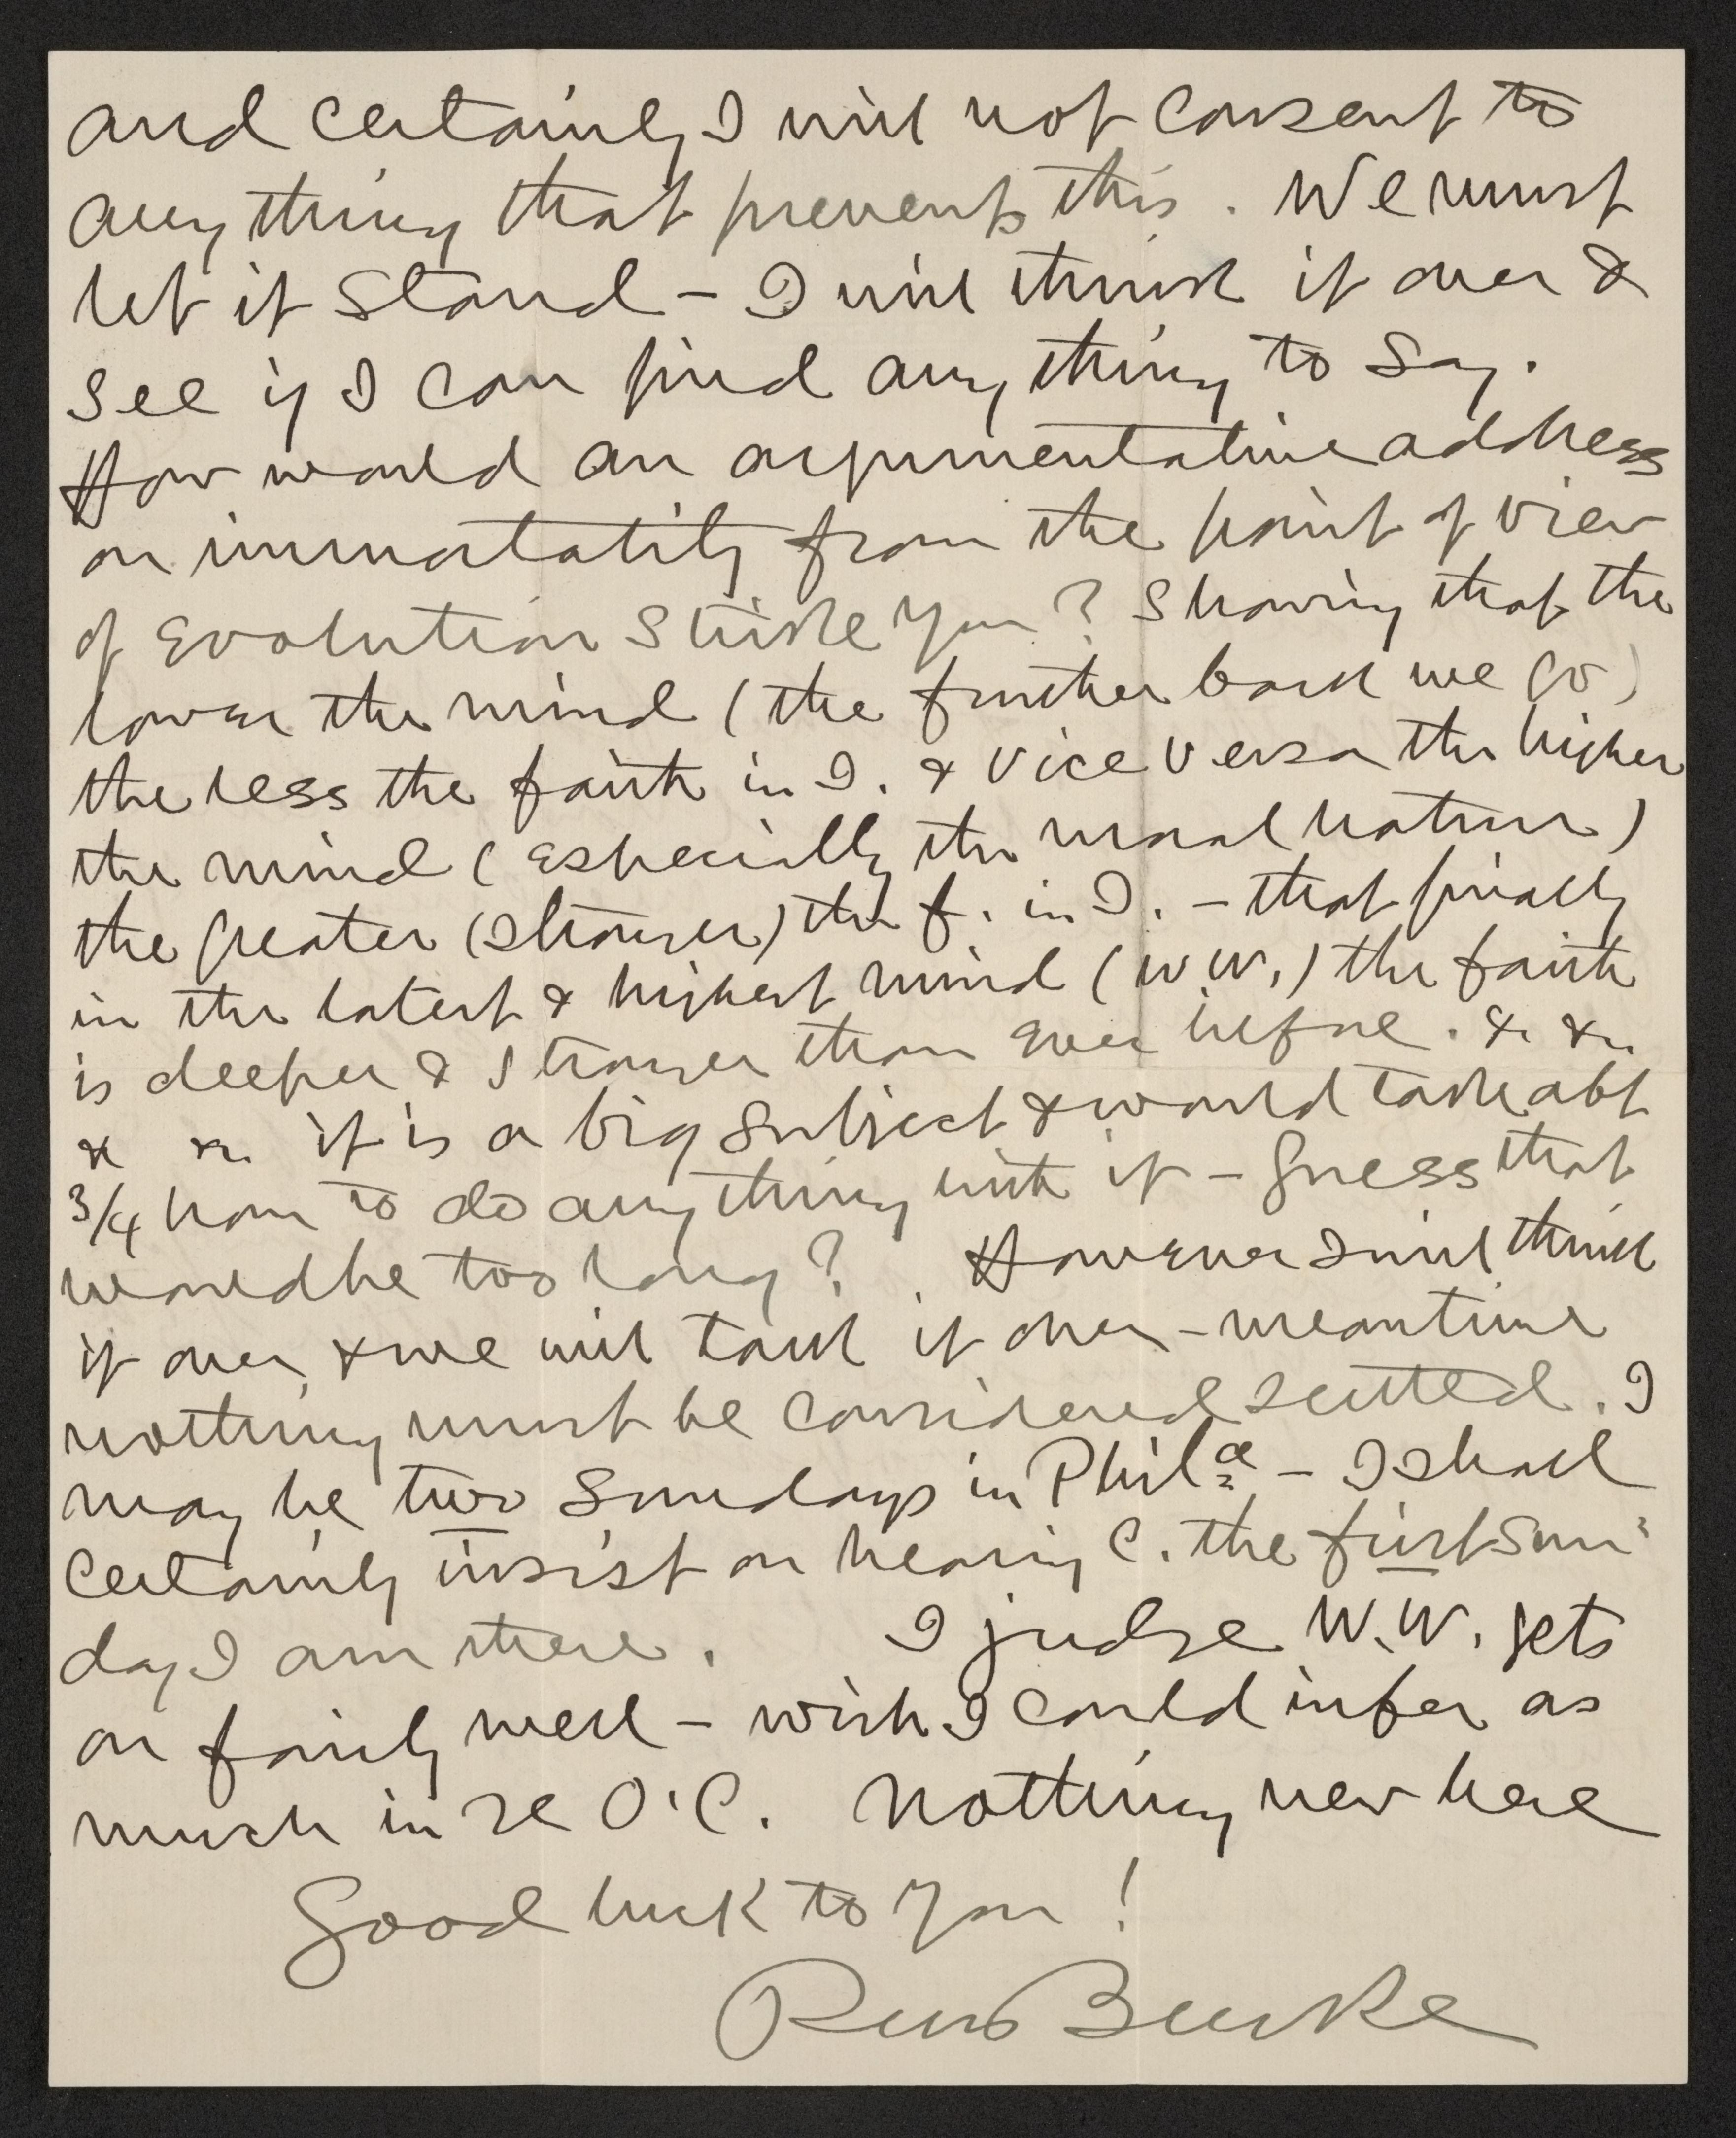 and certainly I will not consent to
anything that prevents this. We must
let it stand – I will think it over &
see if I can find anything to say.
How would an argumentative address
on immortality from the point of view
of Evolution strike you? Showing that the
lower the mind (the further back we go)
the less the faith in I. & vice versa the higher
the mind (especially the moral nature)
the greater (stronger) the f. in I. – that finally
in the latest & highest mind (W.W.) the faith
is deeper & stronger than ever before. &c &c
&c &c it is a big subject & would take abt
3/4 hour to do anything with it – guess that
would be too long? However I will think
it over, & we will talk it over – meantime
nothing must be considered settled. I
may be two Sundays in Phila – I shall
certainly insist on hearing C. the first Sun-
day I am there. I judge W.W. gets
on fairly well – wish I could infer as
much in re O'C. Nothing new here
Good luck to you!
R M Bucke